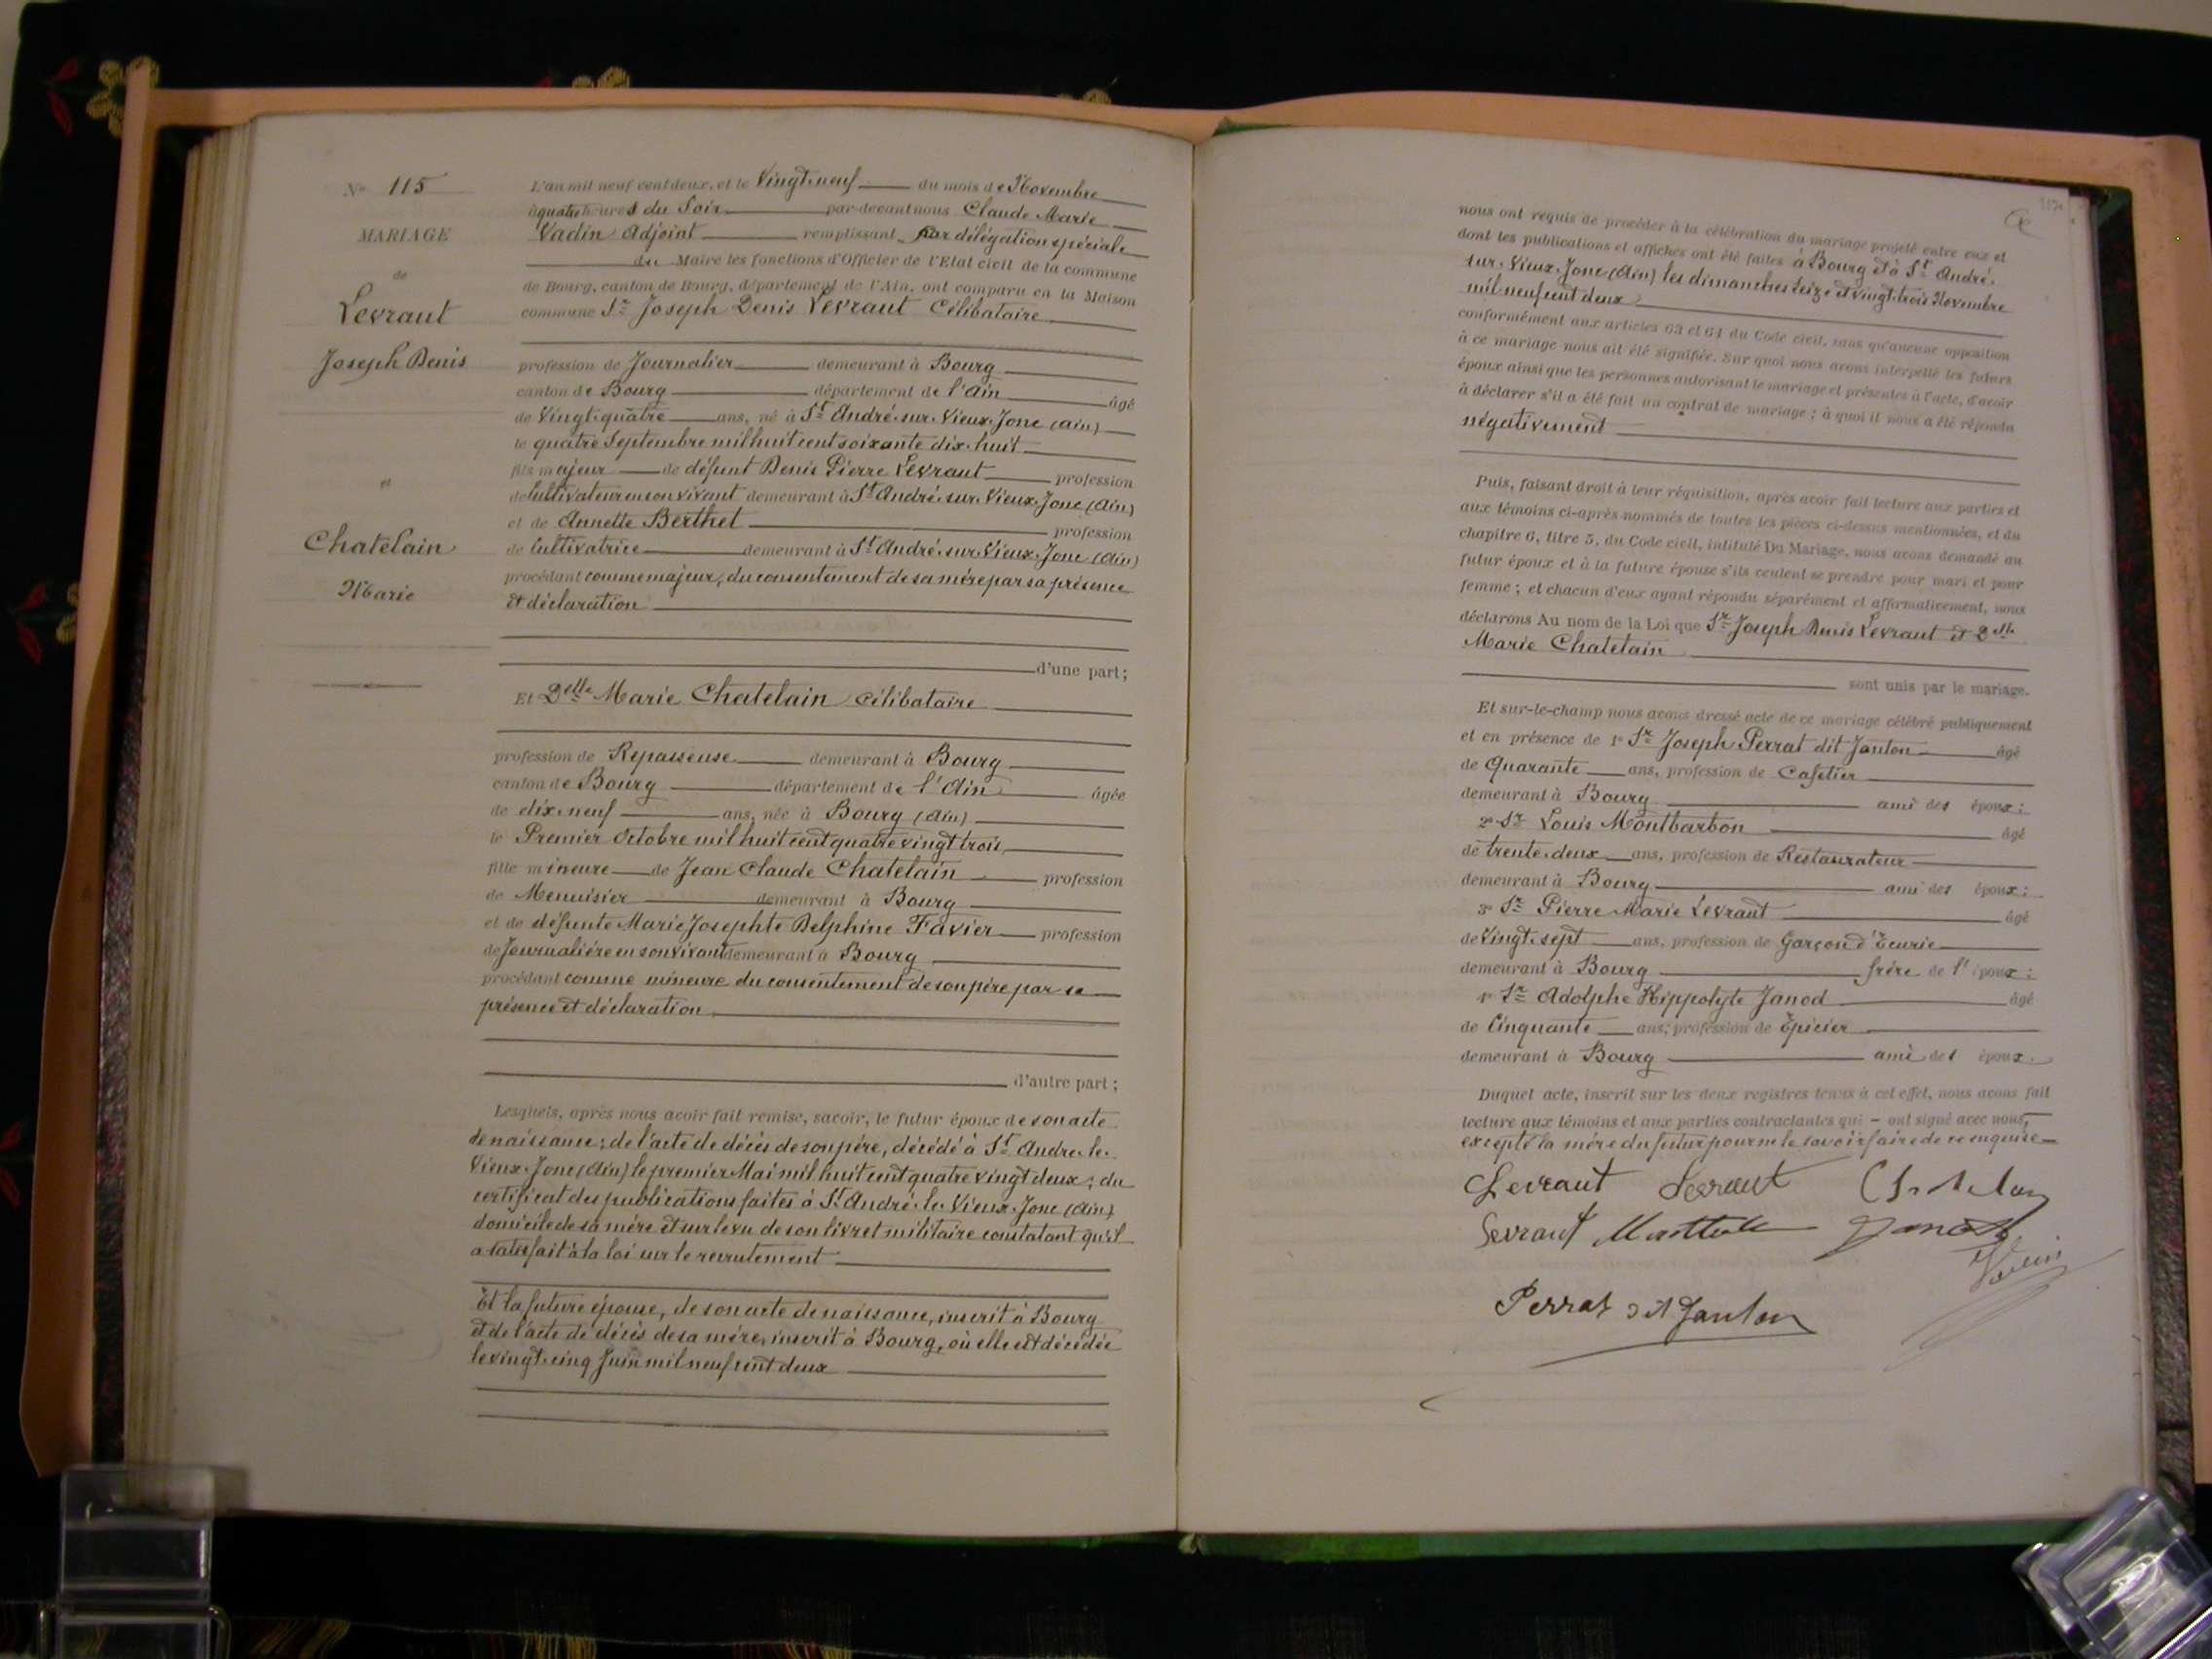 N° 115
MARIAGE
de
Levraut
Joseph Denis
et
Chatelain
Marie
L'an mil neuf cent deux, et le Vingt-neuf du mois de Novembre
à quatre heures du Soir par-devant nous Claude Marie
Vadin Adjoint remplissant par délégation spéciale
du Maire les fonctions d'Officier de l'Etat civil de la commune
de Bourg, canton de Bourg, département de l'Ain, ont comparu en la Maison
commune Sr Joseph Denis Levraut Célibataire
profession de Journalier demeurant à Bourg
canton de Bourg département de l'Ain âgé
de Vingt-quatre ans, né à St André-sur-Vieux-Jonc (Ain)
le quatre Septembre mil huit cent soixante dix-huit
fils majeur de défunt Denis Pierre Levraut profession
de Cultivateur en son vivant demeurant à St André-sur-Vieux-Jonc (Ain)
et de Annette Berthet profession
de Cultivatrice demeurant à St André-sur-Vieux-Jonc (Ain)
procédant comme majeur, du consentement de sa mère par sa présence
et déclaration
d'une part;
Et Delle Marie Chatelain célibataire
profession de Repasseuse demeurant à Bourg
canton de Bourg département de l'Ain âgée
de dix-neuf ans, née à Bourg (Ain)
le Premier Octobre mil huit cent quatre vingt trois
fille mineure de Jean Claude Chatelain profession
de Menuisier demeurant à Bourg
et de défunte Marie Josephte Delphine Favier profession
de Journalière en son vivant demeurant à Bourg
procédant comme mineure du consentement de son père par sa
présence et déclaration
d'autre part;
Lesquels, après nous avoir fait remise, savoir, le futur époux de son acte
de naissance; de l'acte de décès de son père, décédé à St André-le-
Vieux-Jonc (Ain) le premier Mai mil huit cent quatre vingt deux; du
certificat des publications faites à St André-le-Vieux-Jonc (Ain)
domicile de sa mère et sur le vu de son livret militaire constatant qu'il
a satisfait à la loi sur le recrutement
Et la future épouse, de son acte de naissance, inscrit à Bourg
et de l'acte de décès de sa mère, inscrit à Bourg, où elle est décédée
le vingt-cinq Juin mil neuf cent deux
nous ont requis de procéder à la célébration du mariage projeté entre eux et
dont les publications et affiches ont été faites à Bourg et à St André-
sur-Vieux-Jonc (Ain) les dimanches seize et vingt-trois Novembre
mil neuf cent deux
conformément aux articles 63 et 64 du Code civil, sans qu'aucune opposition
à ce mariage nous ait été signifiée. Sur quoi nous avons interpellé les futurs
époux ainsi que les personnes autorisant le mariage et présentes à l'acte, d'avoir
à déclarer s'il a été fait un contrat de mariage; à quoi il nous a été répondu
négativement
Puis, faisant droit à leur réquisition, après avoir fait lecture aux parties et
aux témoins ci-après nommés de toutes les pièces ci-dessus mentionnées, et du
chapitre 6, titre 5, du Code civil, intitulé Du Mariage, nous avons demandé au
futur époux et à la future épouse s'ils veulent se prendre pour mari et pour
femme; et chacun d'eux ayant répondu séparément et affirmativement, nous
déclarons Au nom de la Loi que Sr Joseph Denis Levraut et Delle
Marie Chatelain
sont unis par le mariage.
Et sur-le-champ nous avons dressé acte de ce mariage célébré publiquement
et en présence de 1° Sr Joseph Perrat dit Janton âgé
de Quarante ans, profession de Cafetier
demeurant à Bourg ami des époux;
2° Sr Louis Montbarbon âgé
de trente-deux ans, profession de Restaurateur
demeurant à Bourg ami des époux;
3° Sr Pierre Marie Levraut âgé
de Vingt-sept ans, profession de Garçon d'Ecurie
demeurant à Bourg frère de l'époux;
4° Sr Adolphe Hippolyte Janod âgé
de Cinquante ans, profession de Epicier
demeurant à Bourg ami des époux.
Duquel acte, inscrit sur les deux registres tenus à cet effet, nous avons fait
lecture aux témoins et aux parties contractantes qui - ont signé avec nous,
excepté la mère du futur pour ne le savoir faire de ce enquise
Levraut Levraut Chatelain
Levraut Janod
Vadin
Perrat dit Janton